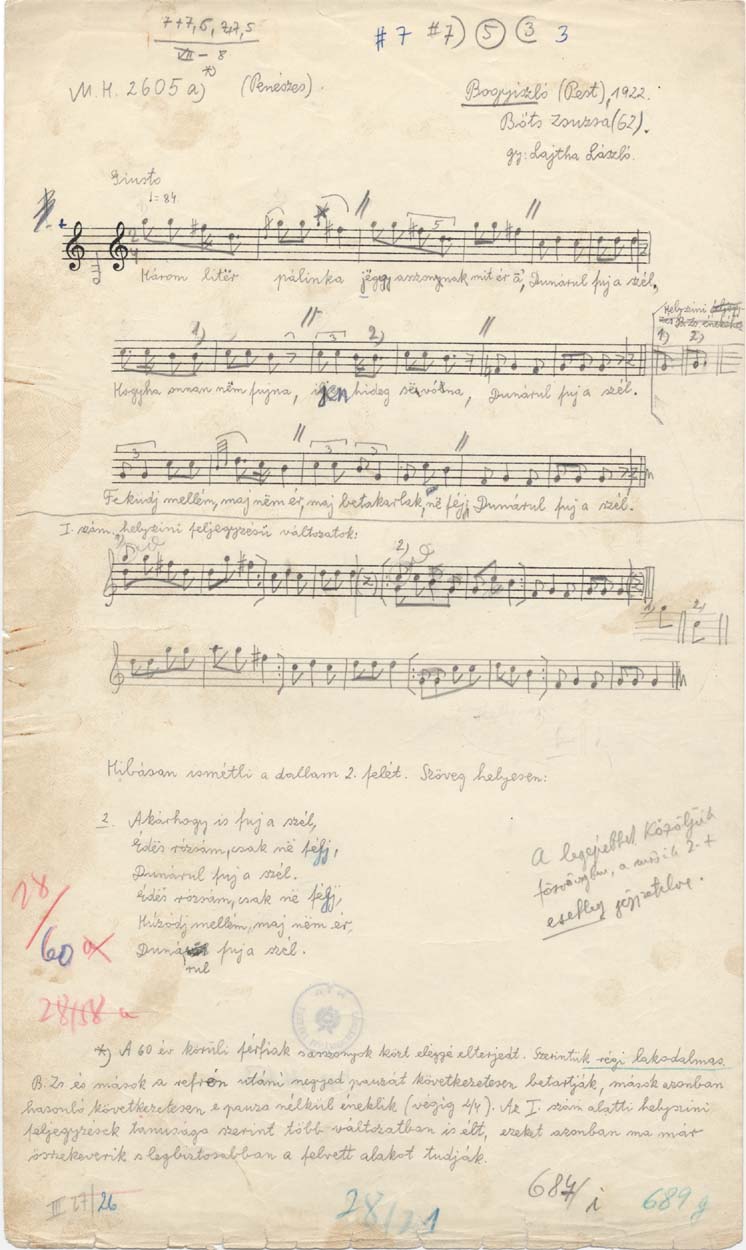 7+7,5, 7+7,5
VII – 8
#7 #7) 5 3 3
M.H. 2605 a) *) (Penészes).
Bogyiszló (Pest), 1922.
Bőts Zsuzsa (62).
gy: Lajtha László.
Giusto
♩= 84
2
4
5
Három litër pálinka jëgyasszonynak mit ér á, Dunárul fuj a szél,
1) 3 2)
Helyszini
1) 2)
Hogyha onnan nëm fujna, ijen hideg së vóna, Dunárul fuj a szél.
3 3 3
Feküdj mellém, maj nëm ér, maj betakarlak, në féjj, Dunárul fuj a szél.
I. szám, helyszini feljegyzésű változatok:
2)
1) 2)
Hibásan ismétli a dallam 2. felét. Szöveg helyesen:
2. Akárhogy is fuj a szél,
Édës rózsám, csak në féjj,
Dunárul fuj a szél.
Édës rózsám, csak në féjj,
Húzódj mellém, maj nëm ér,
Dunárul fuj a szél.
A legépebbet közöljük
a másik 2-t
esetleg jegyzetelve.
28/60 a
28/58 a
*) A 60 év körüli férfiak s asszonyok közt eléggé elterjedt. Szerintük régi lakodalmas.
B. Zs. és mások a refrén utáni negyed pauzát következetesen betartják, mások azonban
hasonló következetesen e pauza nélkül éneklik (végig 4/4). Az I. szám alatti helyszini
feljegyzések tanusága szerint több változatban is élt, ezeket azonban ma már
összekeverik s legbiztosabban a felvett alakot tudják.
III 27/26
28/21
687/i
689 g